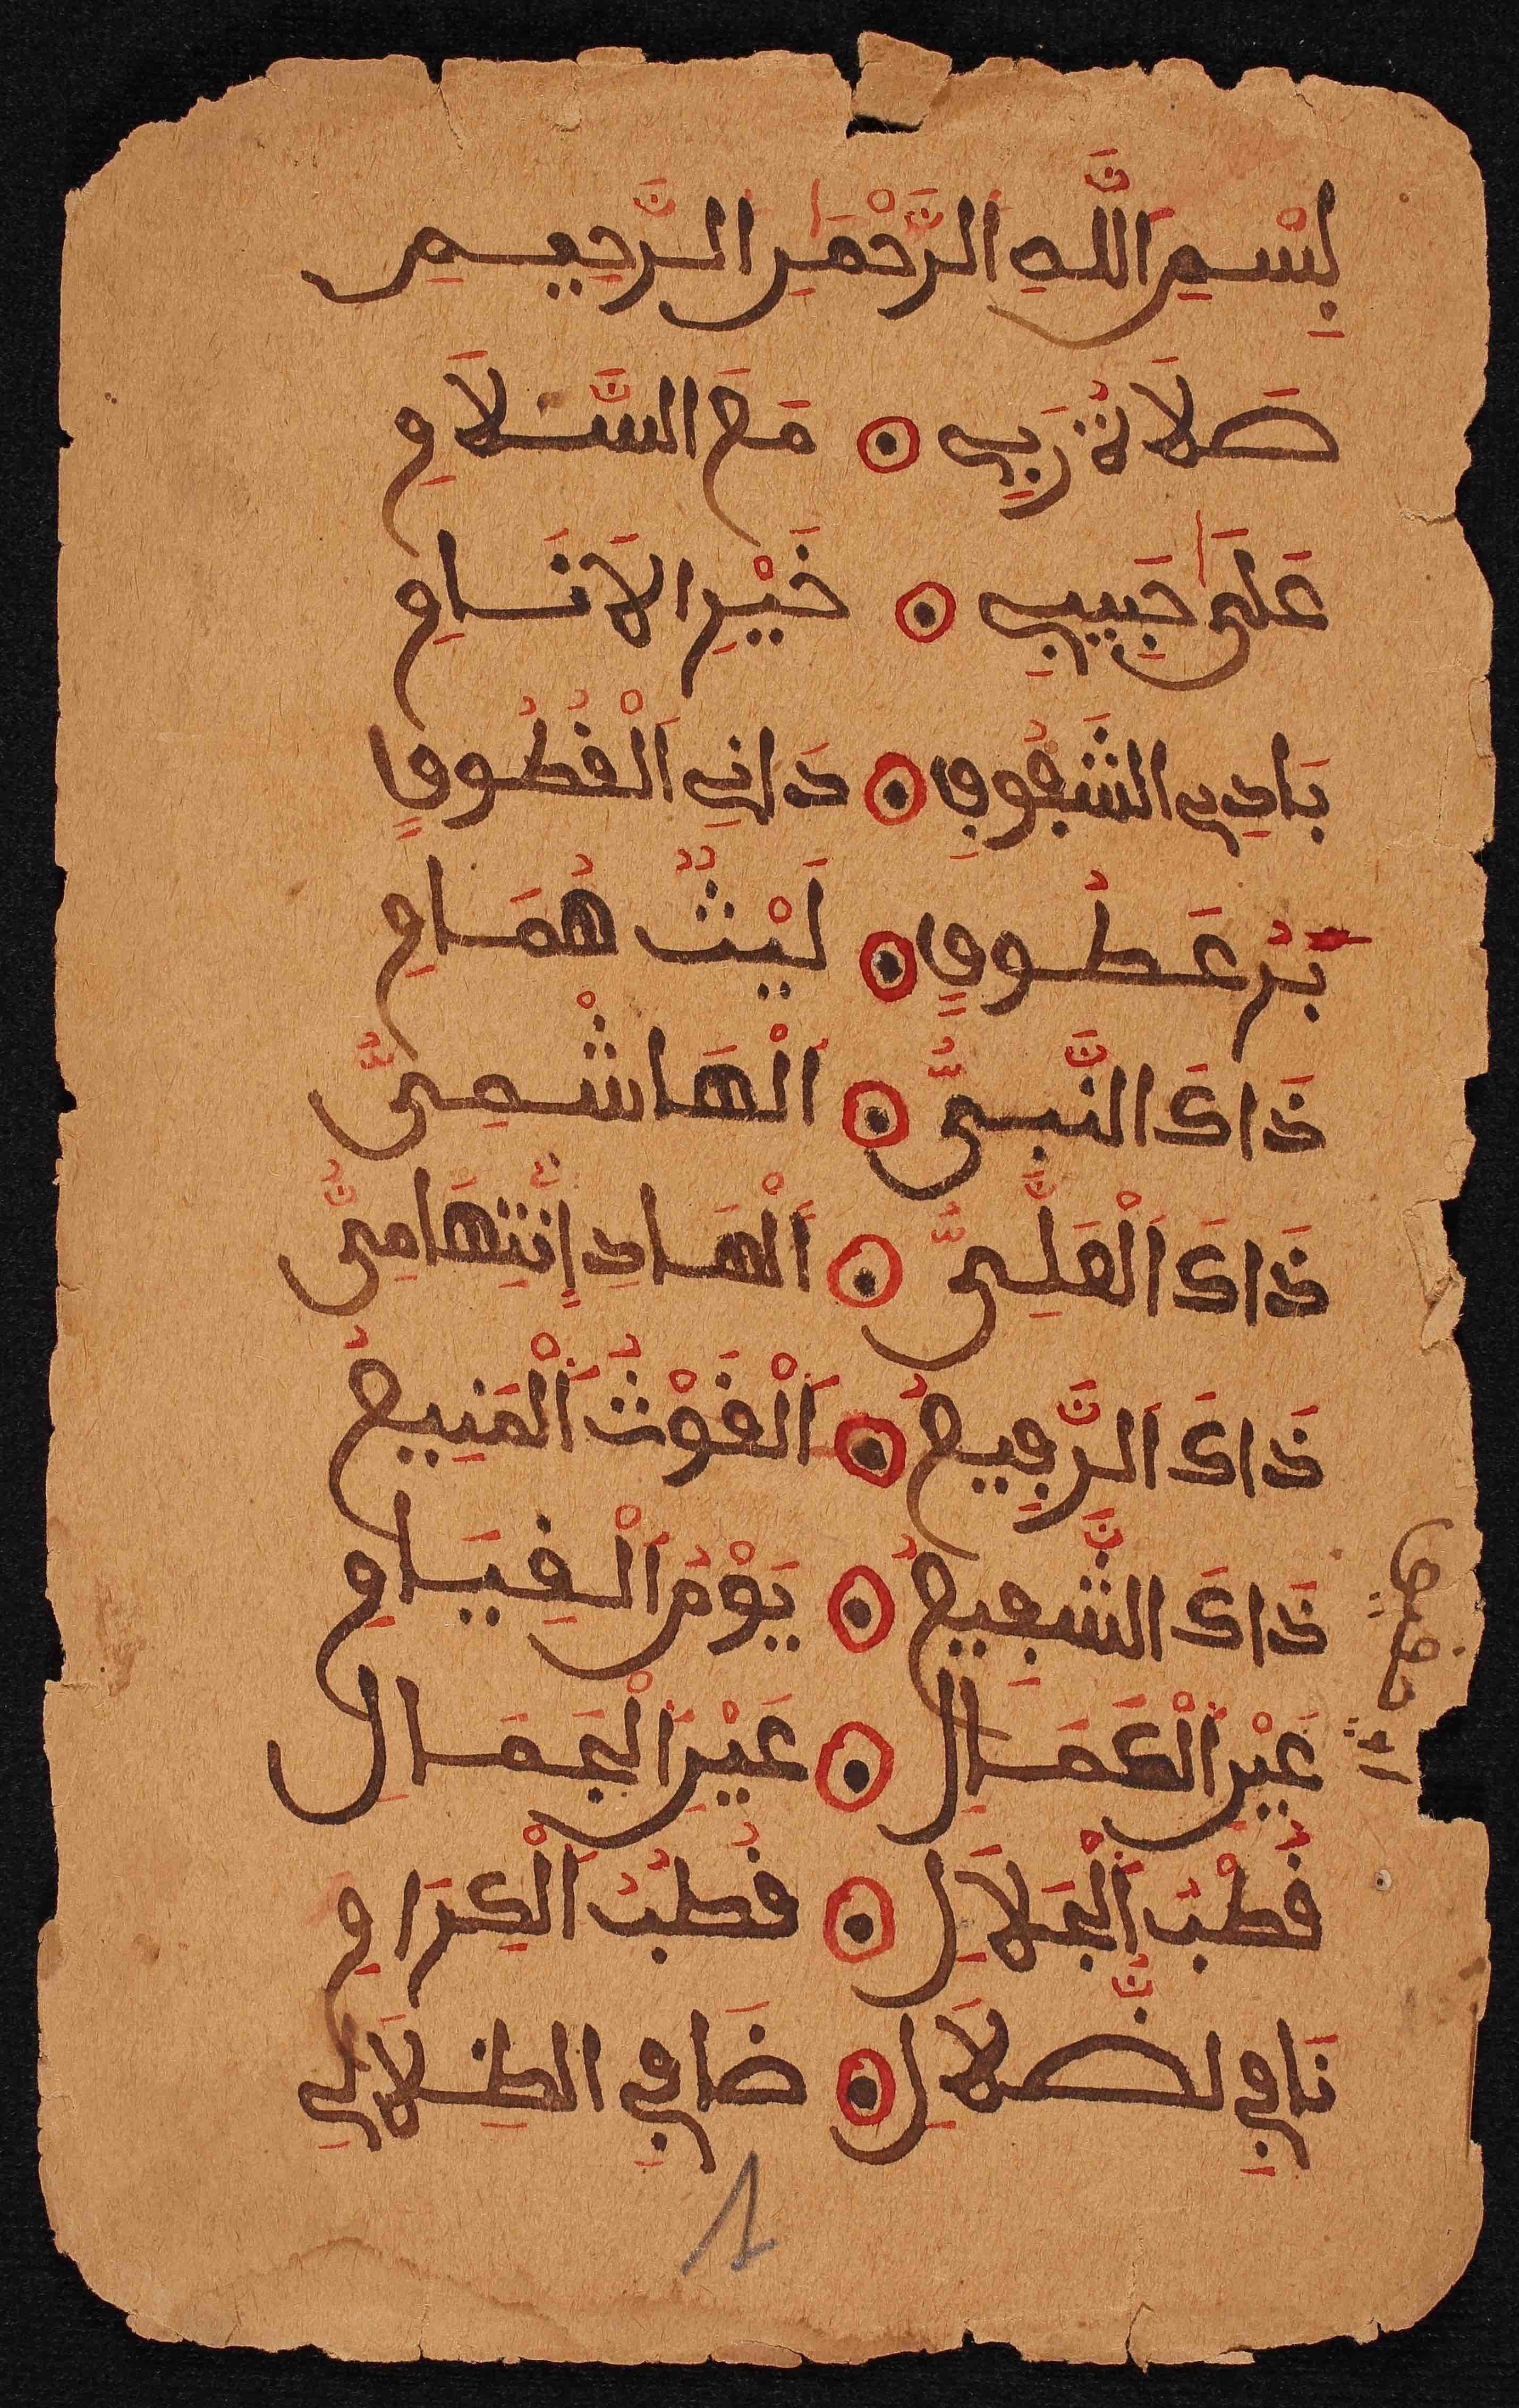 بِسْمِ اللَّهِ الرَّحْمَٰنِ الرَّحِيمِ
صَلَاةُ رَبِي ⊙ مَعَ السَّلَامِ
عَلَىٰ حَبِيبِي ⊙ خَيْرِ الَانَامِ
بَادِي الشُّفُوفِ ⊙ دَانِي الْقُطُوفِ
بَرٍّ عَطُوفٍ ⊙ لَيْثٌ هُمَامِ
ذَاكَ النَّبِىُّ ⊙ الْهَاشْمِىُّ
ذَاكَ الْعَلِىُّ ⊙ الْهَادِ التِّهَامِىُّ
ذَاكَ الرَّفِيعُ ⊙ الْغَوْثُ الْمَنِيعُ
ذَاكَ الشَّفِيعُ ⊙ يَوْمَ الْقِيَامِ
عَيْنِ الْكَمَالِ ⊙ عَيْنِ الْجَمَالِ
قُطْبُ الْجَلَالِ ⊙ قُطْبُ الْكِرَامِ
نَافِي لضَّلَالِ ⊙ ضَافِي الظِلَالِي
1